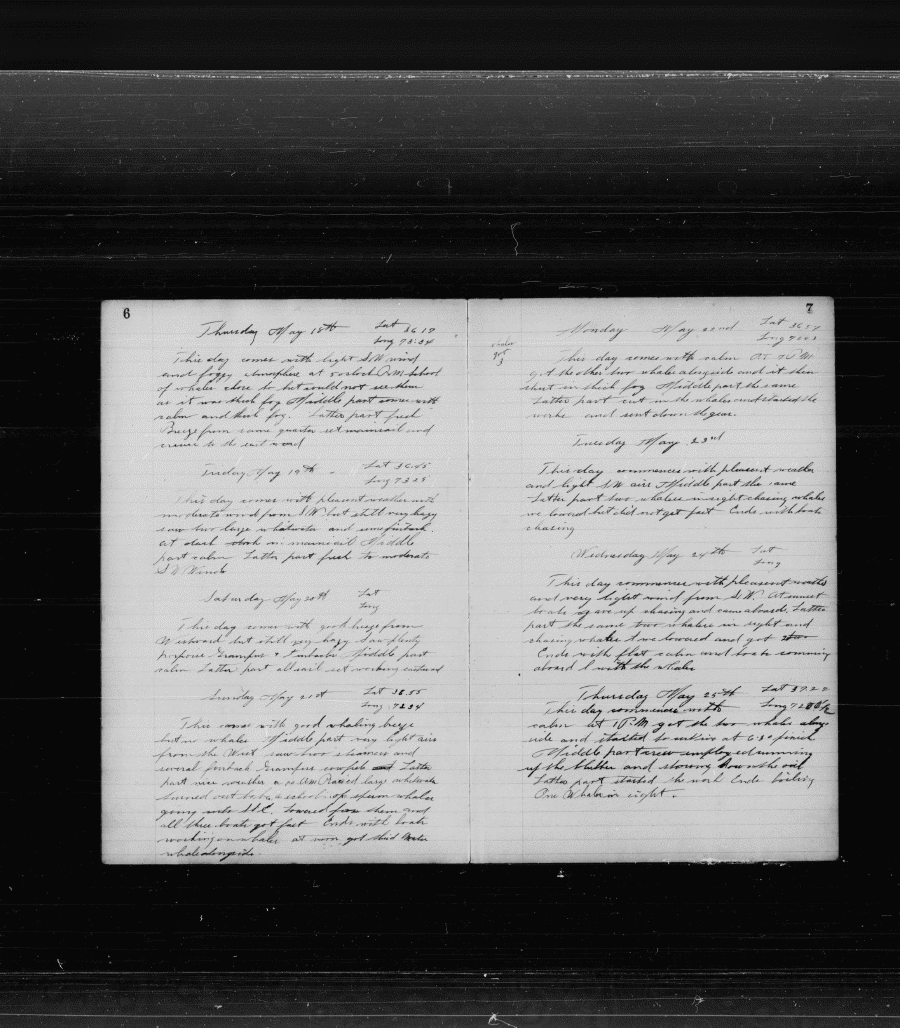 6
Thursday May 18th Lat 36 17
Long 73:34
This day comes with light S.W wind
and foggy atmosphere at 5 oclock A.M School
of whales close to, but could not see them
as it was thick fog Middle part comes with
calm and thick fog. Latter part fresh
Breeze from same quarter set mainsail and
to the eastward
Friday May 19th Lat 36.45
Long 73 23
This day comes with pleasent weather with
moderate wind from S.W but still very hazy
saw two large and
at dark took in mainsail Middle
part calm Latter part fresh to moderate
S W Winds
Saturday May 20th Lat
Long
This day comes with good breeze from
Westward but still very hazy Saw plenty
porpoise Grampus & Finbacks Middle part
calm Latter part all sail set working eastward
Sunday May 21st Lat 36.55
Long 72 34
This comes with good whaling breeze
but no whales Middle part very light airs
from the West saw two steamers and
several finback Grampus cowfish Latter
part nice weather A.M Raised large
turned out to be a school of sperm whales
going Lowered for them and
all three boats got fast Ends with boats
working on whales at noon got third
whale alongside.
7
Monday May 22nd Lat 36 54
Long
got
3
This day comes with calm At P.M
got the other two whales alongside and it then
shut in thick fog Middle part the same
Latter part cut in the whales and started the
works and sent down the gear.
Tuesday May 23rd
This day commences with pleasent weather
and light S.W airs Middle part the same
Latter part two whalers in sight chasing whales
we lowered but did not get fast Ends with boats
chasing
Wednesday May 24th Lat
Long
This day commences with pleasent weather
and very light wind from S.W. At sunset
boats gave up chasing and came aboard. Latter
part the same two whalers in sight and
chasing whales we lowered and got two
Ends with flat calm and boats comming
aboard with the whales
Thursday May 25th Lat 37.22
This day commences with Long
calm at 1 P.M got the two whales along
side and started to cutting at 6:30 finish
Middle part crew employed mincing
up the blubber and stowing down the oil
Latter part started the work Ends boiling
One Whaler in sight.